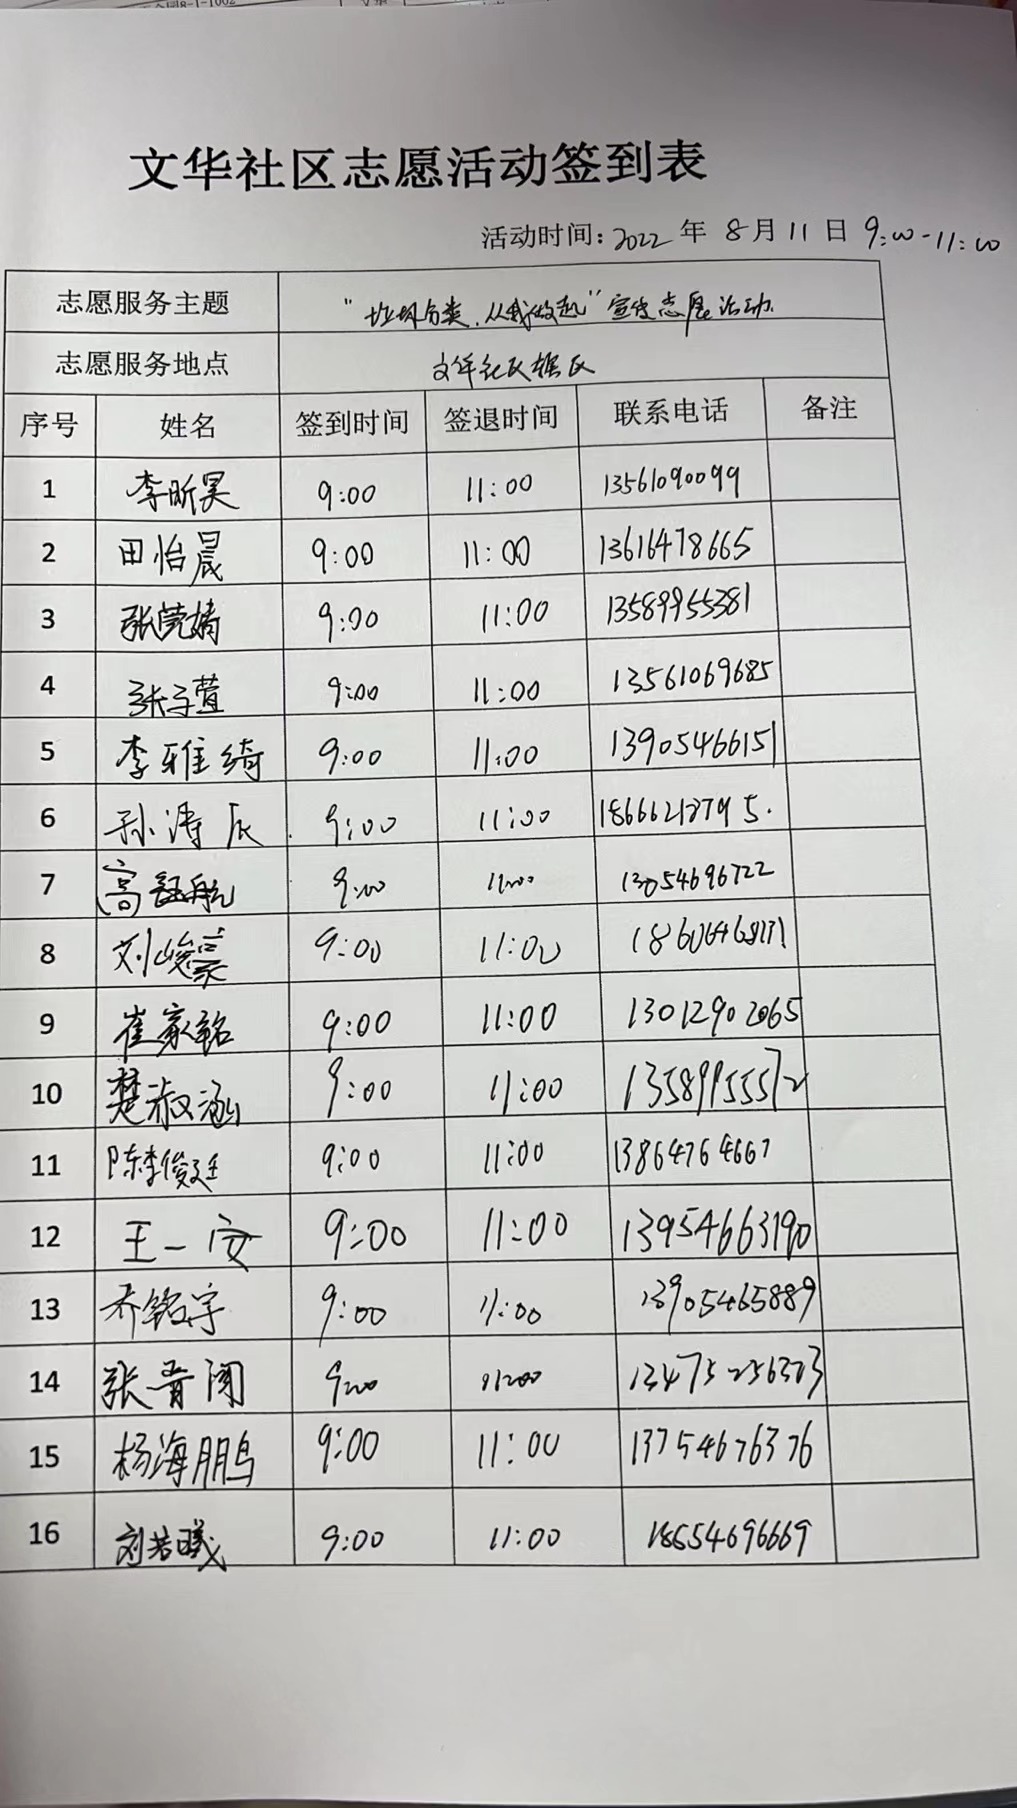 文华社区志愿活动签到表
活动时间: 2022 年 8 月 11 日 9:00-11:00
志愿服务主题 "垃圾分类,从我做起"宣传志愿活动.
志愿服务地点 文华社区辖区
序号 姓名 签到时间 签退时间 联系电话 备注
1 李昕昊 9:00 11:00 13561090099
2 田怡晨 9:00 11:00 13616478665
3 张莞婧 9:00 11:00 13589955381
4 张子萱 9:00 11:00 13561069685
5 李雅绮 9:00 11:00 13905466151
6 孙涛辰 9:00 11:00
7 高钰航 9:00 11:00 13054696722
8 刘峻豪 9:00 11:00
9 崔家铭 9:00 11:00 13012902065
10 楚淑涵 9:00 11:00 13589955572
11 陈李俊廷 9:00 11:00 13864764667
12 王一安 9:00 11:00 13954663190
13 乔铭宇 9:00 11:00 13905465889
14 张晋闻 9:00 11:00 13475256373
15 杨海鹏 9:00 11:00 13754676376
16 刘若曦 9:00 11:00 18654696669